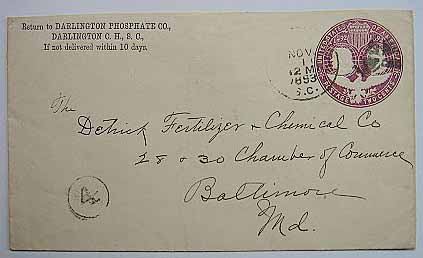 Return to DARLINGTON PHOSPHATE CO.,
DARLINGTON C. H., S. C.,
If not delivered within 10 days.
NOV
12 M
1893
S.C.
UNITED STATES
POSTAGE TWO CENTS
The
Detrick Fertilizer & Chemical Co
28 & 30 Chamber of Commerce
Baltimore
Md.